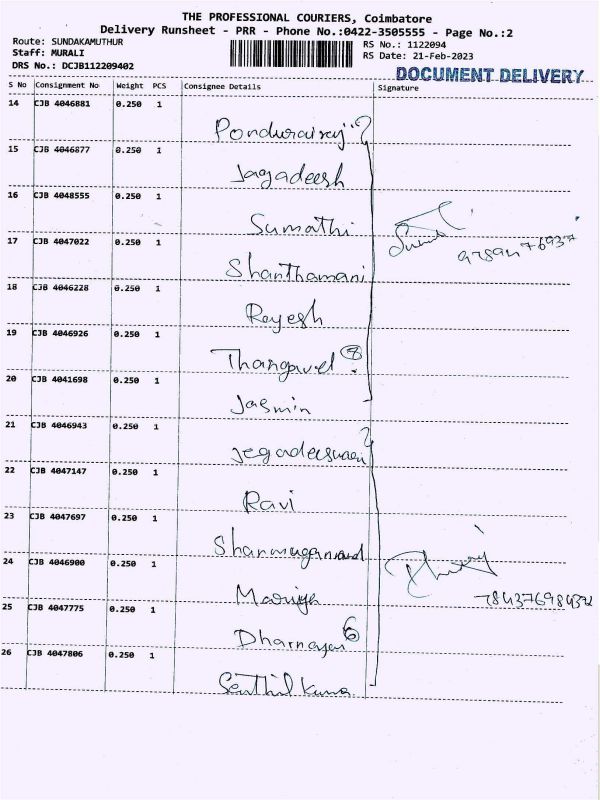 THE PROFESSIONAL COURIERS, Coimbatore
Delivery Runsheet - PRR - Phone No.:0422-3505555 - Page No.:2
Route: SUNDAKAMUTHUR
Staff: MURALI
DRS No.: DCJB112209402
RS No.: 1122094
RS Date: 21-Feb-2023
DOCUMENT DELIVERY
S No Consignment No Weight PCS Consignee Details Signature
14 CJB 4046881 0.250 1
15 CJB 4046877 0.250 1
Jagadeesh
16 CJB 4048555 0.250 1
Sumathi
17 CJB 4047022 0.250 1
Shanthamani
18 CJB 4046228 0.250 1
Rayesh
19 CJB 4046926 0.250 1
Thangavel 8
20 CJB 4041698 0.250 1
Jasmin
21 CJB 4046943 0.250 1
22 CJB 4047147 0.250 1
Ravi
23 CJB 4047697 0.250 1
24 CJB 4046900 0.250 1
25 CJB 4047775 0.250 1
6
26 CJB 4047806 0.250 1